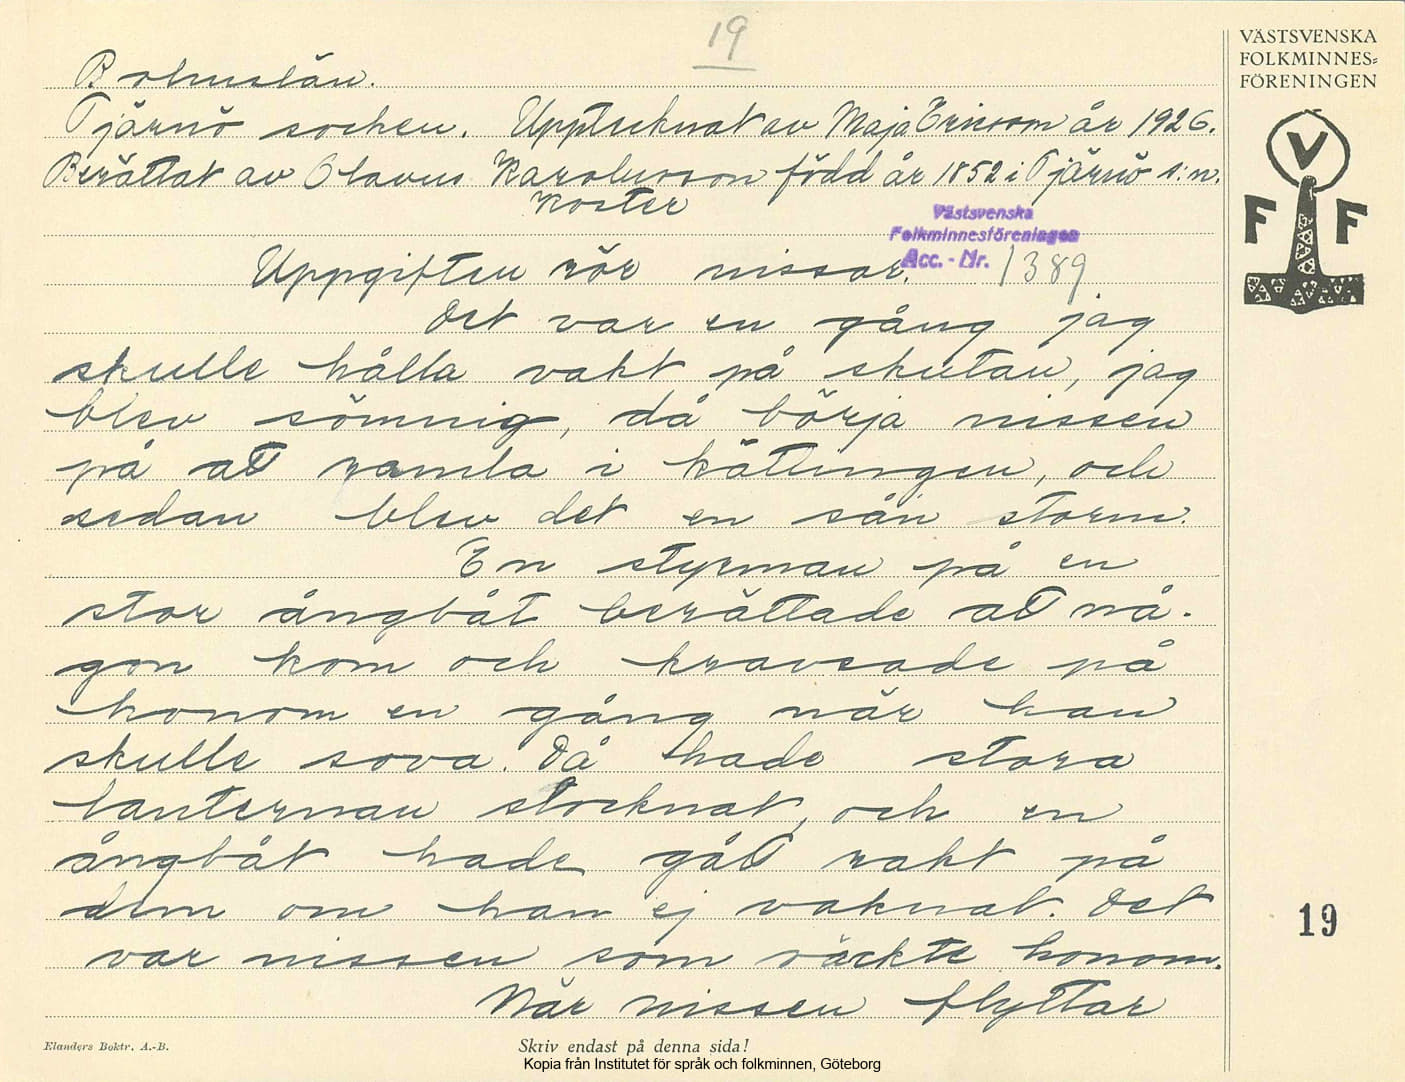 19
VÄSTSVENSKA
FOLKMINNES=
FÖRENINGEN
Bohuslän.
Tjärnö socken. Upptecknat av Maja Ericson år 1926.
Berättat av Olavus Karolusson född år 1852 i Tjärnö s:n.
Koster
Västsvenska
Folkminnesföreningen
Acc. - Nr. 1389
V
F F
Uppgiften rör nissar.
Det var en gång jag
skulle hålla vakt på skutan, jag
blev sömnig, då börja nissen
på att ramla i kättingen, och
sedan blev det en sån storm.
En styrman på en
stor ångbåt berättade att nå-
gon kom och kravsade på
honom en gång när han
skulle sova. Då hade stora
lanternan slocknat, och en
ångbåt hade gått rakt på
dem om han ej vaknat. Det
var nissen som väckte honom.
När nissen flyttar
19
Elanders Boktr. A.-B.
Skriv endast på denna sida!
Kopia från Institutet för språk och folkminnen, Göteborg